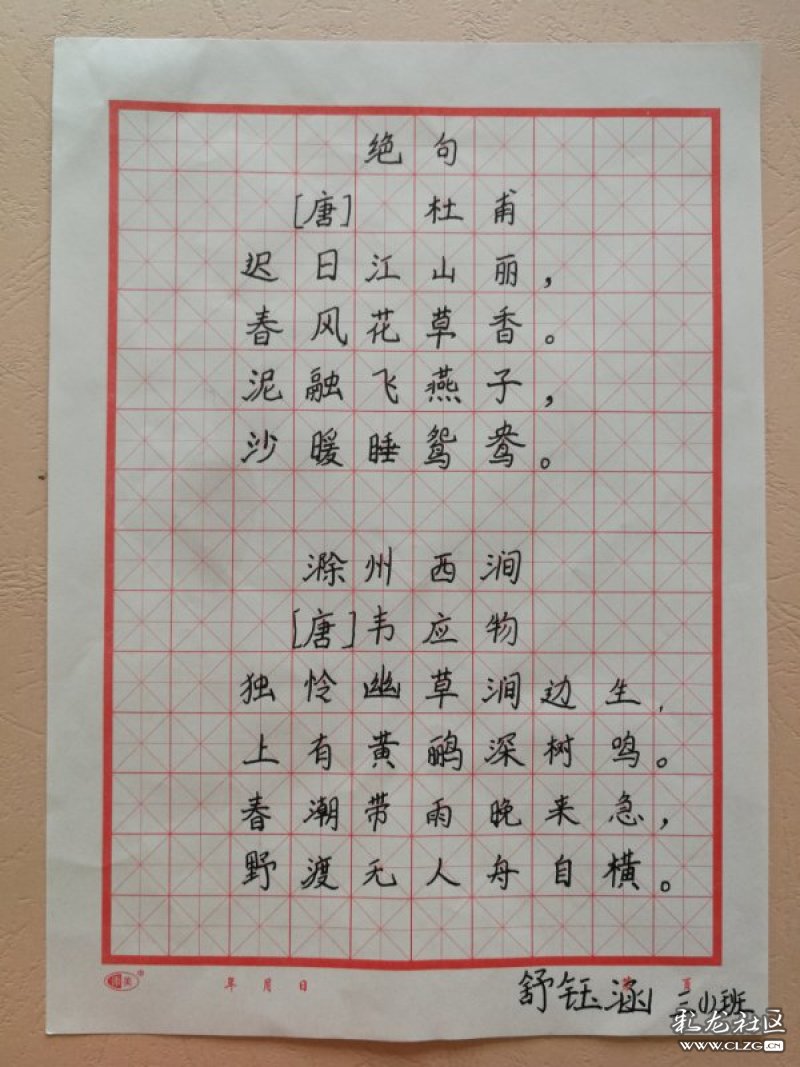 绝句
[唐] 杜甫
迟日江山丽，
春风花草香。
泥融飞燕子，
沙暖睡鸳鸯。
滁州西涧
[唐]韦应物
独怜幽草涧边生，
上有黄鹂深树鸣。
春潮带雨晚来急，
野渡无人舟自横。
年 月 日
舒钰涵 三(1)班
彩龙社区
www.CLZG.CN